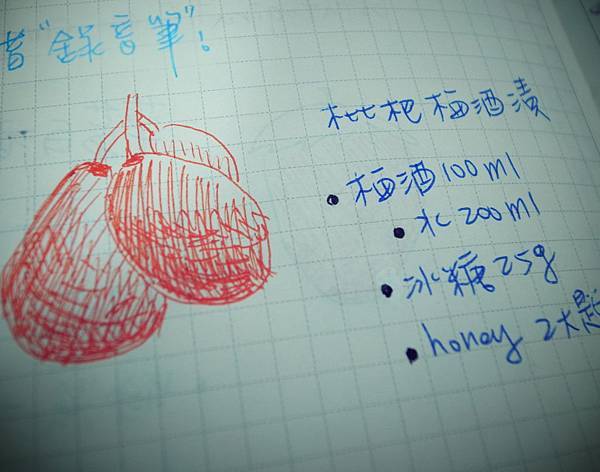 "錄音筆"!
枇杷梅酒漬
• 梅酒100ml
• 水200ml
• 冰糖25g
• honey 2大匙